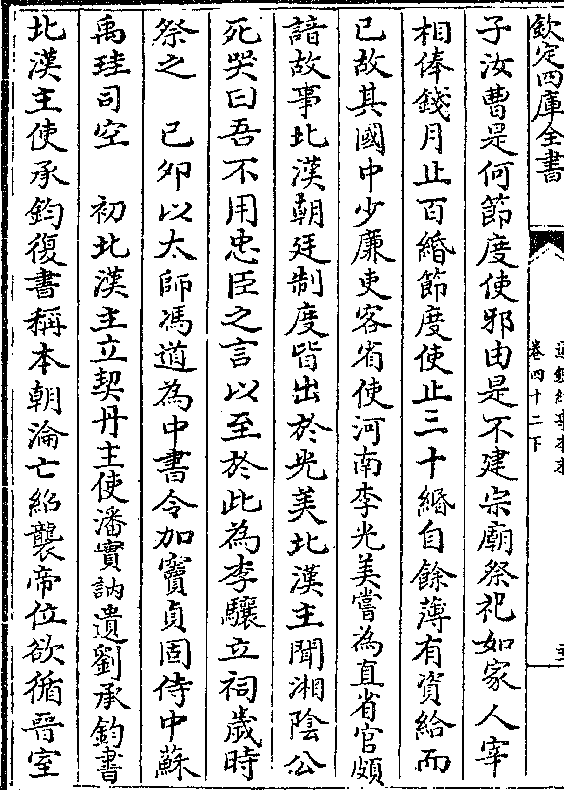 欽定四庫全書
通鑑紀事本末
卷四十二下
子汝曹是何節度使邪由是不建宗廟祭祀如家人宰
相俸錢月止百緡節度使止三十緡自餘薄有資給而
已故其國中少廉吏客省使河南李光美嘗為直省官頗
諳故事北漢朝廷制度皆出於光美北漢主聞湘陰公
死哭曰吾不用忠臣之言以至於此為李驤立祠歲時
祭之　已卯以太師馮道為中書令加竇貞固侍中蘇
禹珪司空　初北漢主立契丹主使潘實訥遺劉承鈞書
北漢主使承鈞復書稱本朝淪亡紹襲帝位欲循晉室